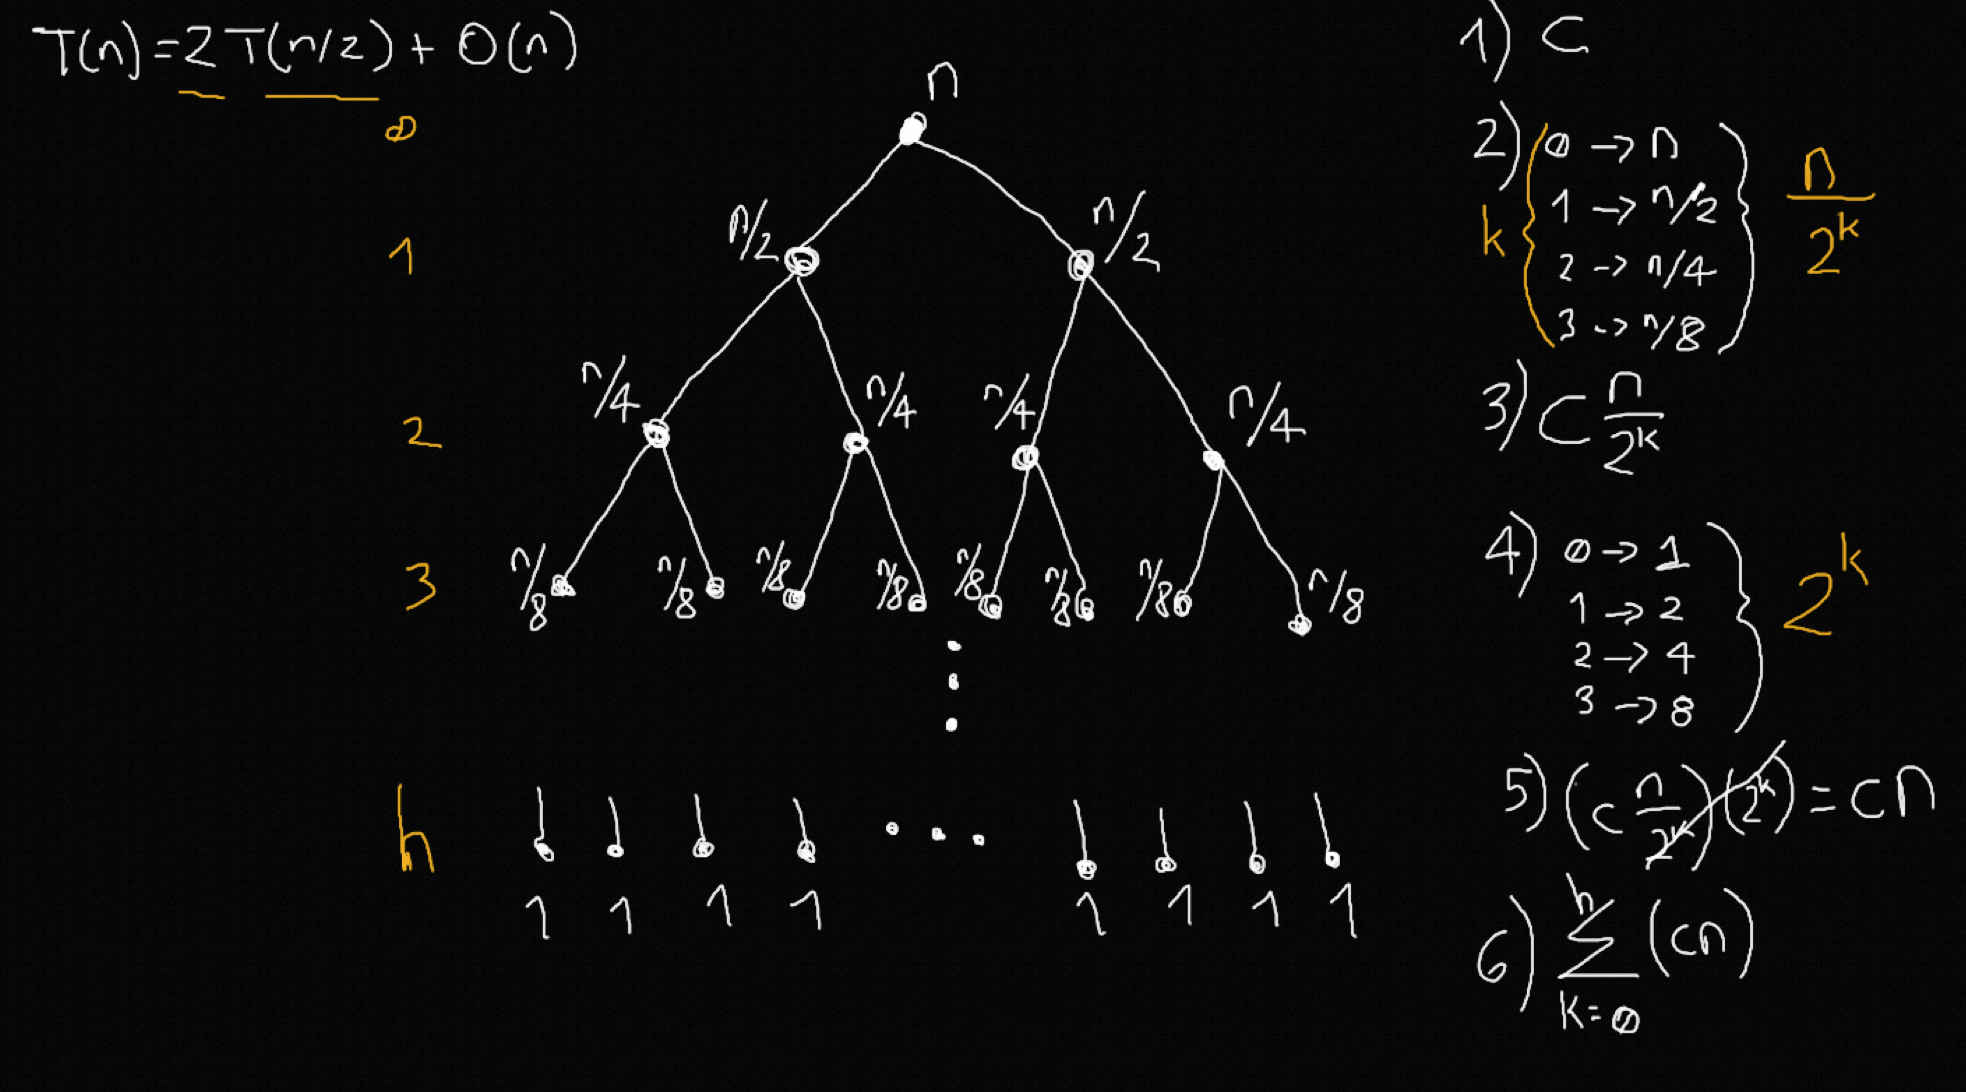 T(n)=2T(n/2)+O(n)
n
0
n/2 n/2
1
n/4 n/4 n/4 n/4
2
n/8 n/8 n/8 n/8 n/8 n/8 n/8 n/8
3
h
1 1 1 1 1 1 1 1
1) C
2) 0 → n
1 → n/2
2 → n/4
3 → n/8
k
n/2^k
3) C n/2^k
4) 0 → 1
1 → 2
2 → 4
3 → 8
2^k
5) (c n/2^k)(2^k) = cn
6) h∑k=0 (cn)